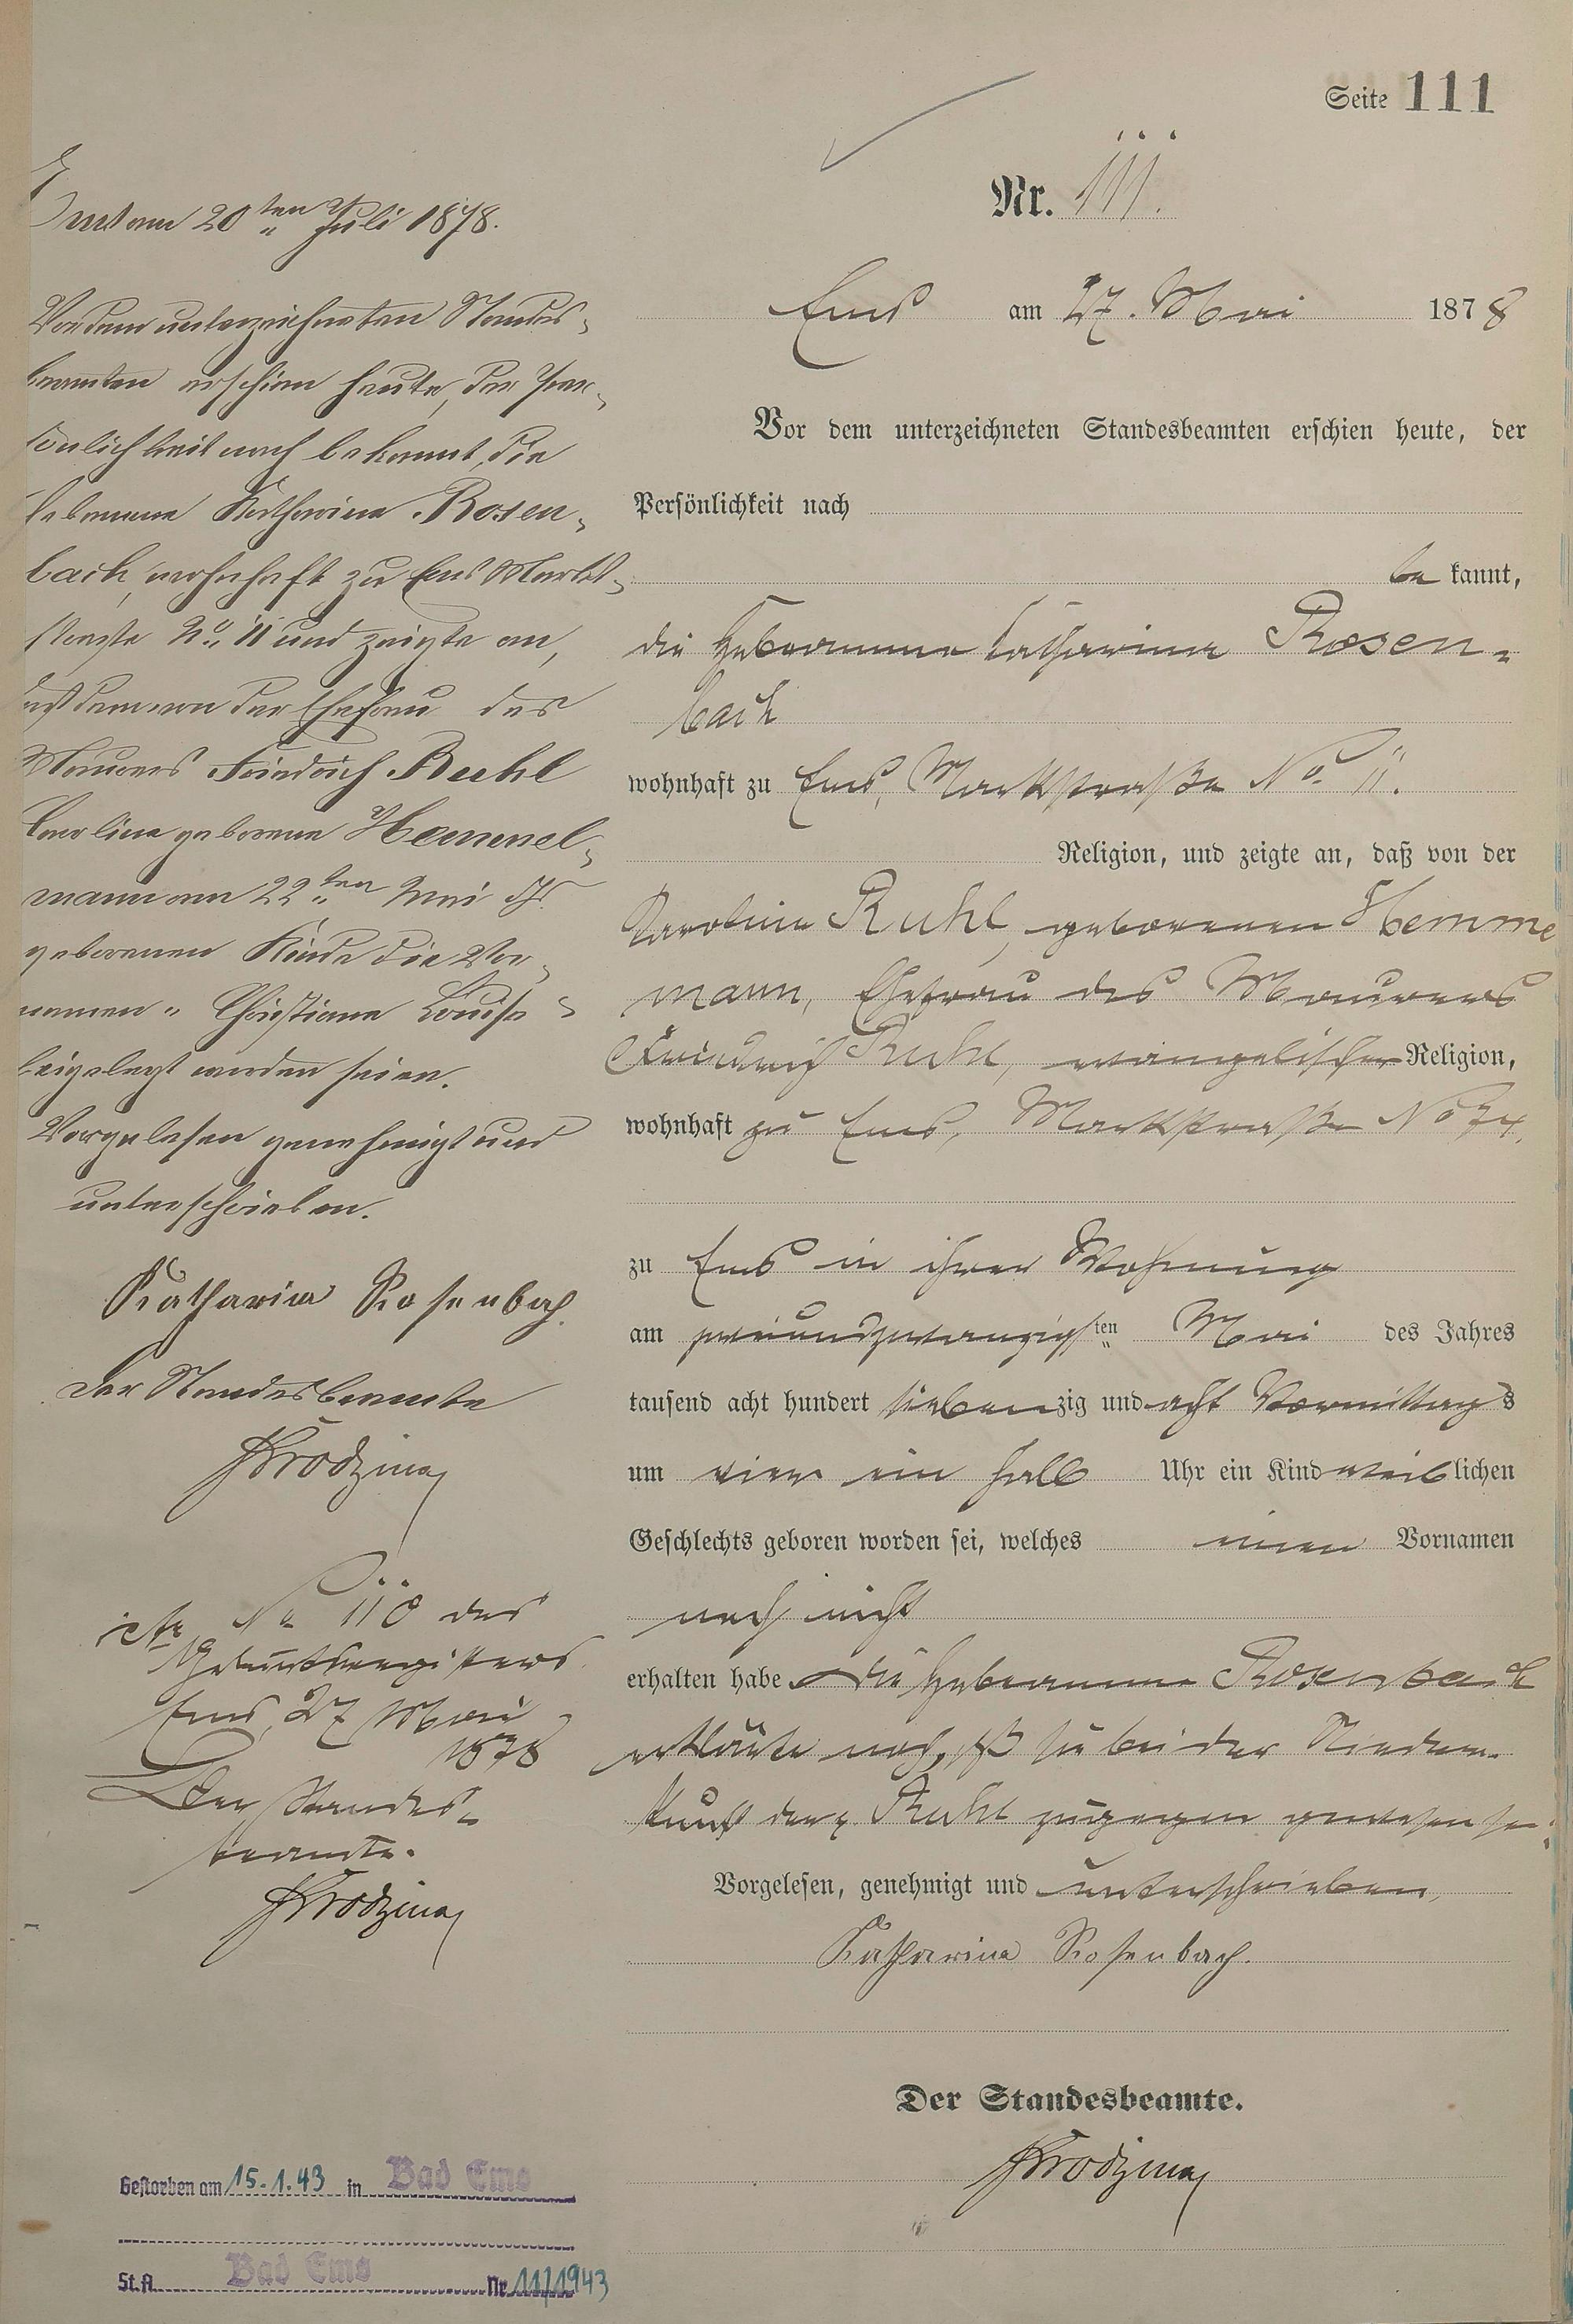 Seite 111
Nr. 111.
Ems am 27. Mai 1878
Vor dem unterzeichneten Standesbeamten erschien heute, der
Persönlichkeit nach
be kannt,
die Hebamme Catharina Rosen-
bach
wohnhaft zu Ems, Marktstraße No. 11.
Religion, und zeigte an, daß von der
Karoline Ruhl, geborenen Hemme
mann, Ehefrau des Maurers
Friedrich Ruhl, evangelischer Religion,
wohnhaft zu Ems, Marktstraße No 74,
zu Ems in ihrer Wohnung
am zweiundzwanzigsten Mai des Jahres
tausend acht hundert siebenzig und acht Vormittags
um vier ein halb Uhr ein Kind weiblichen
Geschlechts geboren worden sei, welches einen Vornamen
noch nicht
erhalten habe Die Hebamme Rosenbach
erklärte noch, daß sie bei der Nieder-
kunft der Ruhl zugegen gewesen sei.
Vorgelesen, genehmigt und unterschrieben,
Katharina Rosenbach.
Der Standesbeamte.
am 20ten Juli 1878.
Vor dem unterzeichneten Standes-
beamten erschien heute, der Per-
sönlichkeit nach bekannt, die
Hebamme Katharina Rosen-
bach, wohnhaft zu Ems Markt-
straße No. 11 und zeigte an,
daß dem von der Ehefrau des
Maurers Friedrich Ruhl
Caroline geborene Hemmel-
mann am 22ten Mai
geborenen Kinde die Vor-
namen „Christiane Louise"
beigelegt worden seien.
Vorgelesen genehmigt und
unterschrieben.
Katharina Rosenbach.
Der Standesbeamte
No 110 des
Geburtsregisters
Ems, 27 Mai
1878
Der Standes-
beamte.
Gestorben am 15.1.43 in Bad Ems
St.A. Bad Ems Nr. 11/1943